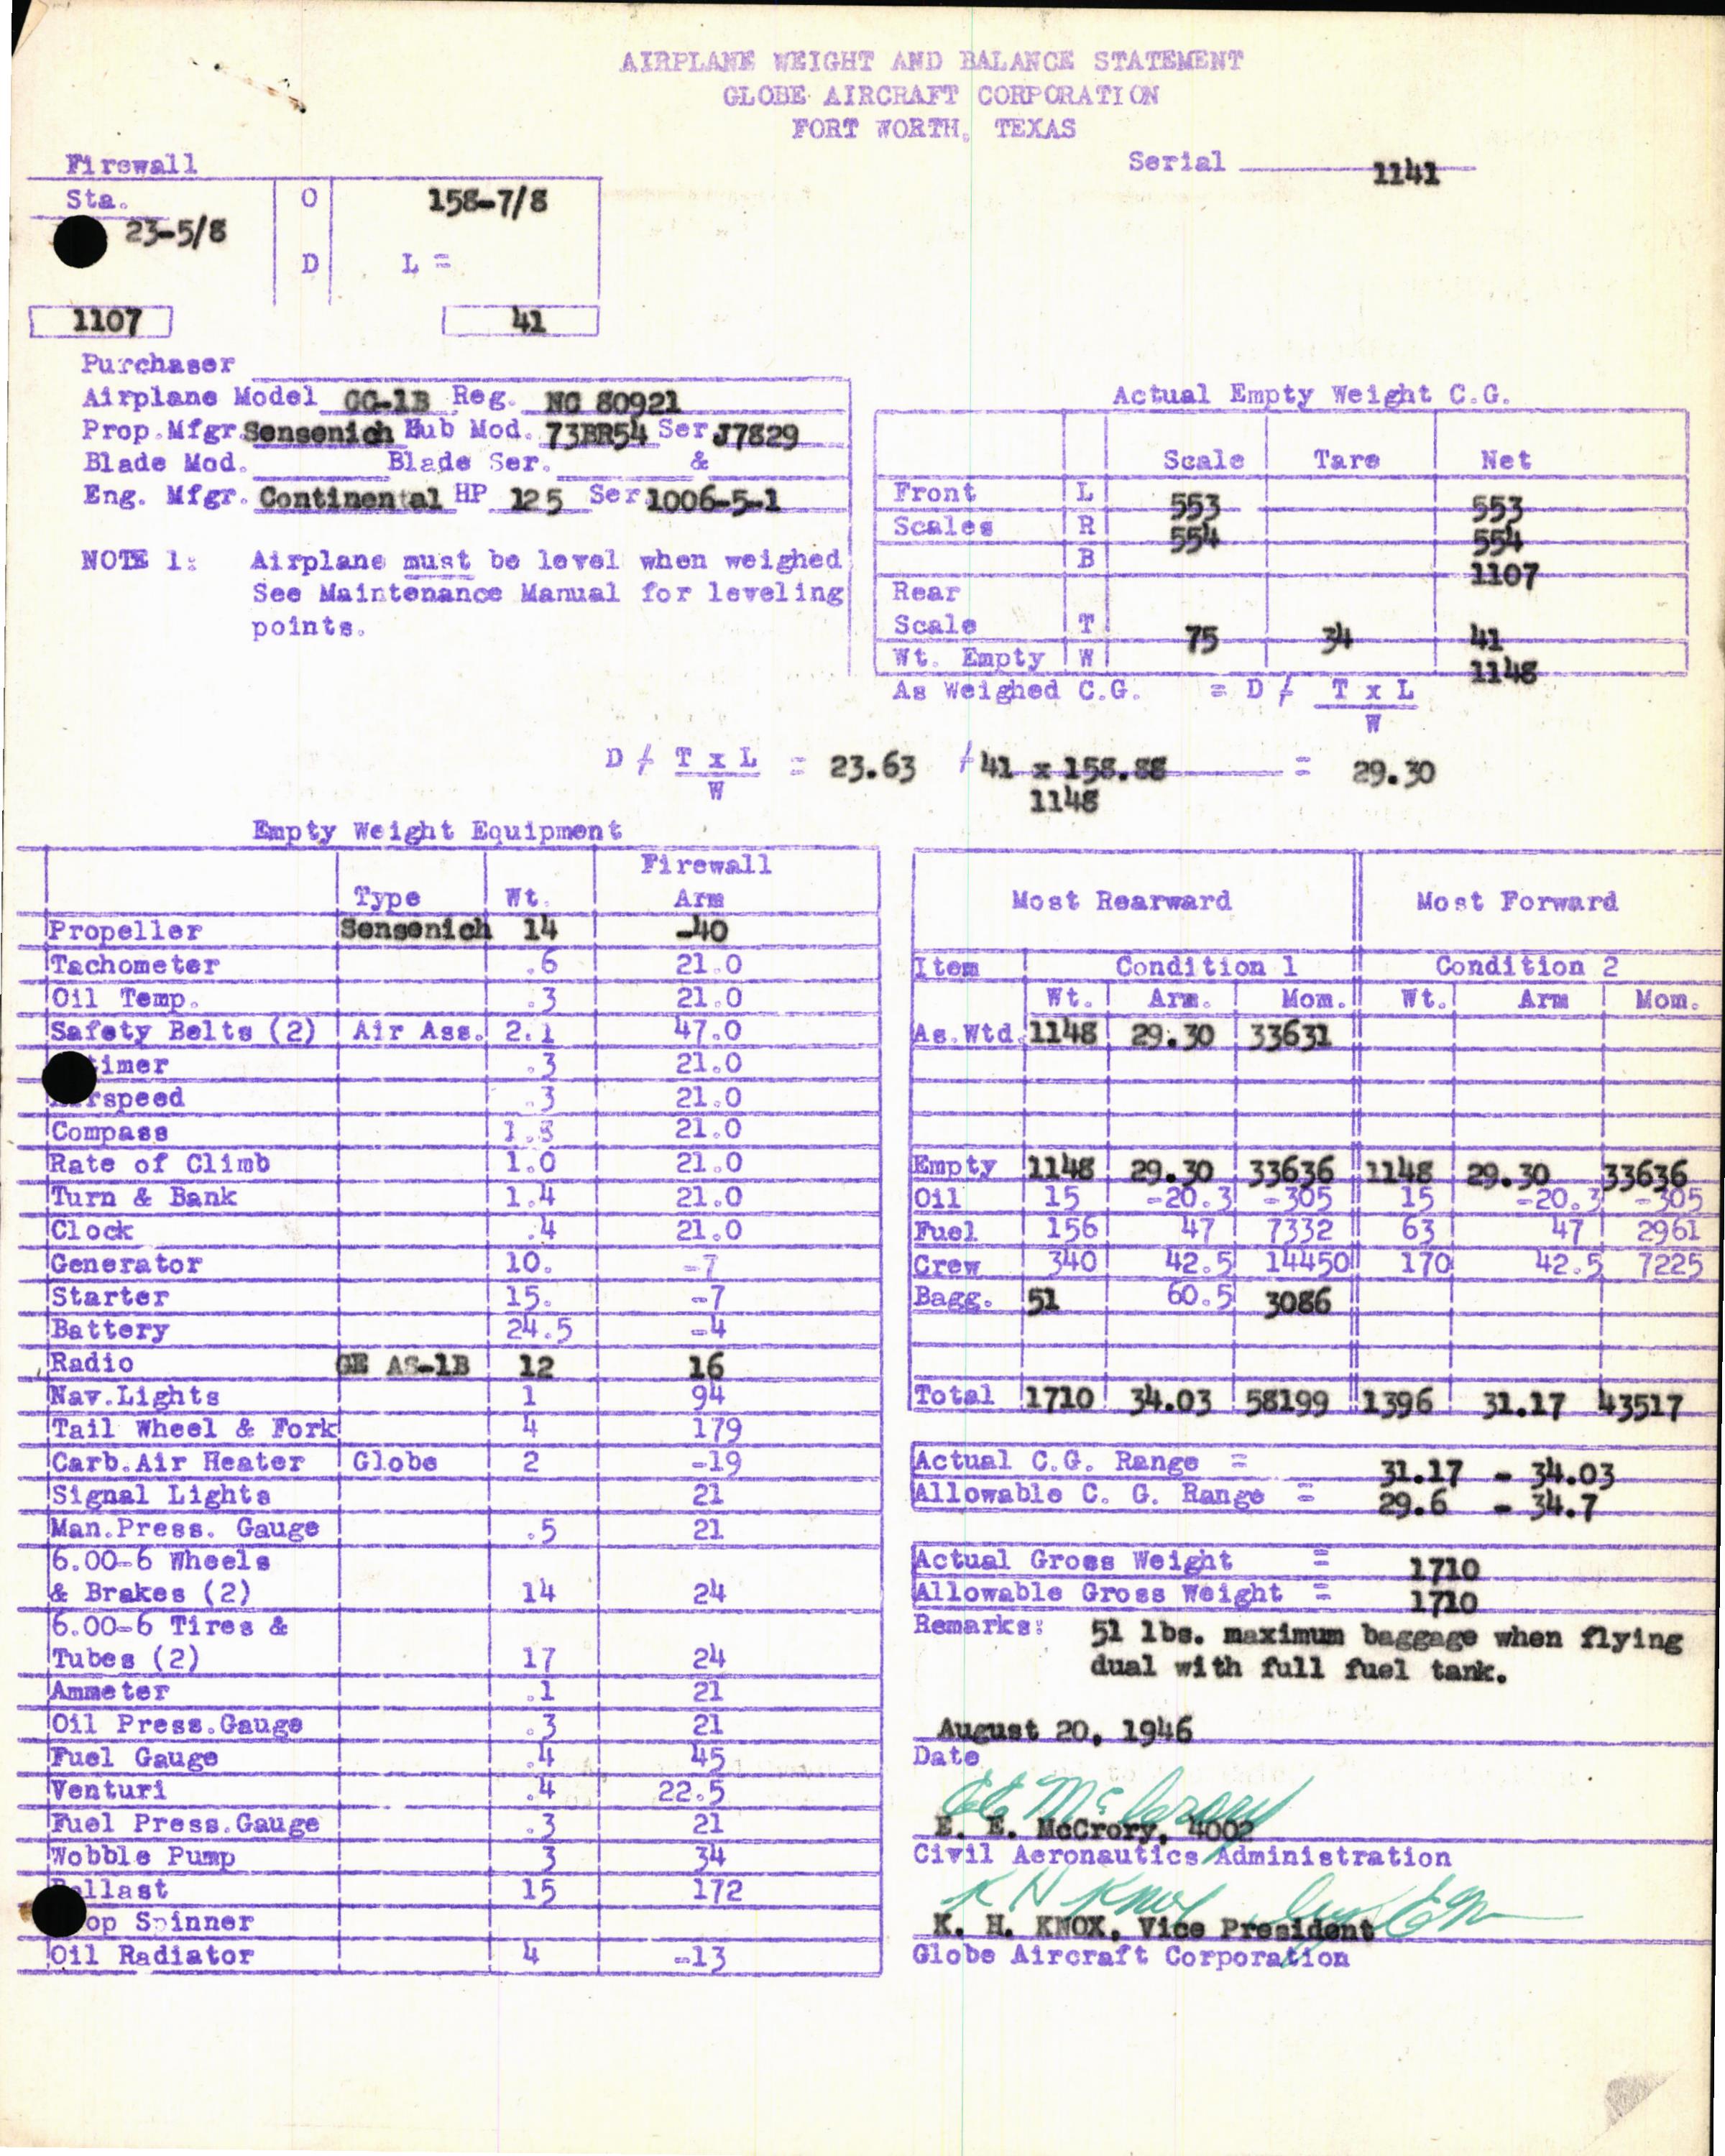 AIRPLANE WEIGHT AND BALANCE STATEMENT
GLOBE AIRCRAFT CORPORATION
FORT WORTH, TEXAS
Serial 1141
Firewall
Sta. O 158-7/8
23-5/8
D L =
1107 41
Purchaser
Airplane Model GC-1B Reg. NC 80921
Prop.Mfgr. Sensenich Hub Mod. 73BR54 Ser J7829
Blade Mod. Blade Ser. &
Eng. Mfgr. Continental HP 125 Ser 1006-5-1
NOTE 1: Airplane must be level when weighed
See Maintenance Manual for leveling
points.
Actual Empty Weight C.G.
Scale Tare Net
Front L 553 553
Scales R 554 554
B 1107
Rear
Scale T 75 34 41
Wt. Empty W 1148
As Weighed C.G. = D / T x L
W
D / T x L = 23.63 / 41 x 158.88 = 29.30
W 1148
Empty Weight Equipment
Firewall
Type Wt. Arm
Propeller Sensenich 14 -40
Tachometer .6 21.0
Oil Temp. .3 21.0
Safety Belts (2) Air Ass. 2.1 47.0
timer .3 21.0
rspeed .3 21.0
Compass 1.8 21.0
Rate of Climb 1.0 21.0
Turn & Bank 1.4 21.0
Clock .4 21.0
Generator 10. -7
Starter 15. -7
Battery 24.5 -4
Radio GE AS-1B 12 16
Nav.Lights 1 94
Tail Wheel & Fork 4 179
Carb.Air Heater Globe 2 -19
Signal Lights 21
Man.Press. Gauge .5 21
6.00-6 Wheels
& Brakes (2) 14 24
6.00-6 Tires &
Tubes (2) 17 24
Ammeter .1 21
Oil Press.Gauge .3 21
Fuel Gauge .4 45
Venturi .4 22.5
Fuel Press.Gauge .3 21
Wobble Pump 3 34
allast 15 172
op Spinner
Oil Radiator 4 -13
Most Rearward Most Forward
Item Condition 1 Condition 2
Wt. Arm. Mom. Wt. Arm Mom.
As.Wtd. 1148 29.30 33631
Empty 1148 29.30 33636 1148 29.30 33636
Oil 15 -20.3 -305 15 -20.3 -305
Fuel 156 47 7332 63 47 2961
Crew 340 42.5 14450 170 42.5 7225
Bagg. 51 60.5 3086
Total 1710 34.03 58199 1396 31.17 43517
Actual C.G. Range = 31.17 - 34.03
Allowable C. G. Range = 29.6 - 34.7
Actual Gross Weight = 1710
Allowable Gross Weight = 1710
Remarks: 51 lbs. maximum baggage when flying
dual with full fuel tank.
August 20, 1946
Date
EE McCrory
E. E. McCrory, 4002
Civil Aeronautics Administration
K H Knox
K. H. KNOX, Vice President
Globe Aircraft Corporation